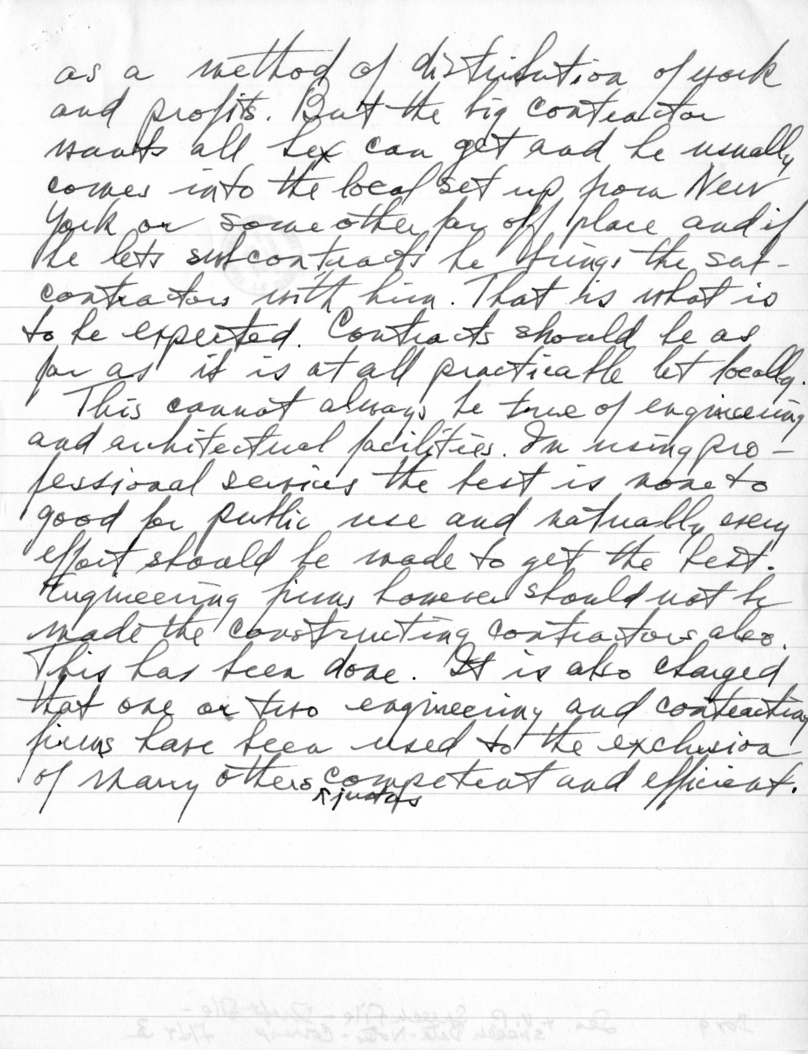 as a method of distribution of work
and profits. But the big contractor
wants all he can get and he usually
comes into the local set up from New
York or some other far off place and if
he lets subcontracts he brings the sub-
contractors with him. That is what is
to be expected. Contracts should be as
far as it is at all practicable let locally.
This cannot always be true of engineering
and architectual facilities. In using pro-
fessional services the best is none to
good for public use and natually every
effort should be made to get the best.
Engineering firms however should not be
made the constructing contractors also.
This has been done. It is also charged
that one or two engineering and contracting
firms have been used to the exclusion
of many others just as competent and efficient.